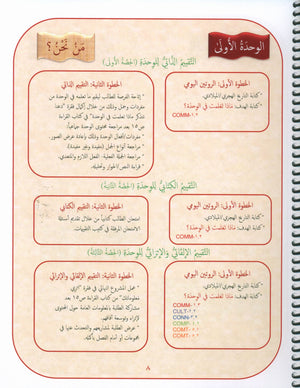 الوحدة الأولى
مَنْ نَحْنُ ؟
التقييم الذاتي للوحدة (الحصة الأولى)
الخطوة الأولى: الروتين اليومي
* كتابة التاريخ الهجري/الميلادي.
* كتابة الهدف: ماذا تعلمت في الوحدة؟
COMM-١.٢
الخطوة الثانية: التقييم الذاتي
* إتاحة الفرصة للطالب ليقيم ما تعلمه في الوحدة من
مفردات وجمل وذلك من خلال إكمال فقرة "دعنا
نتذكر ماذا تعلمت في الوحدة؟" في كتاب القراءة ص
١٥ بعد مراجعة محتوى الوحدة جماعياً:
* مراجعة مفردات الوحدة، وذلك بإعادة عرض الصور.
* مراجعة أنواع الجمل (مفيدة وغير مفيدة).
* مراجعة الجملة الفعلية - الفعل اللازم والمتعدي.
* قراءة النص/الحوار وتحليله.
التقييم الكتابي للوحدة (الحصة الثانية)
الخطوة الأولى: الروتين اليومي
* كتابة التاريخ الهجري/الميلادي.
* كتابة الهدف: ماذا تعلمت في الوحدة؟
COMM-١.٢
الخطوة الثانية: التقييم الكتابي
امتحان الطالب كتابياً من خلال تقديم أسئلة
الامتحان المرفق في كتيب التقييمات.
التقييم الإلقائي والإثرائي للوحدة (الحصة الثالثة)
الخطوة الأولى: الروتين اليومي
* كتابة التاريخ الهجري/الميلادي.
* كتابة الهدف: ماذا تعلمت في الوحدة؟
COMM-١.٣
CULT-٢.٢
CONN-٣.٢
COMP-٤.٢
COMT-٥.١
COMT-٥.٢
الخطوة الثانية: التقييم الإلقائي والإثرائي
* عمل المشروع النهائي في فقرة "أثري
معلوماتك" من كتاب القراءة ص ١٥ بعد
مشاركة الطلبة بالمعلومات حول محتوى الوحدة
لإثراء وتوسعة آفاقهم.
* عرض الطلبة لمشاريعهم والتحدث عنها في
مجموعات أو أمام الفصل بأكمله.
٨